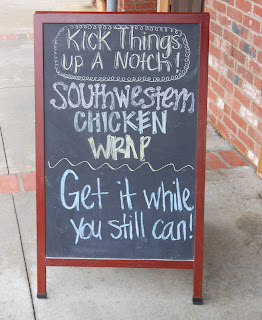 Kick Things
up A Notch!
Southwestern
CHICKEN
WRAP
Get it while
you still can!